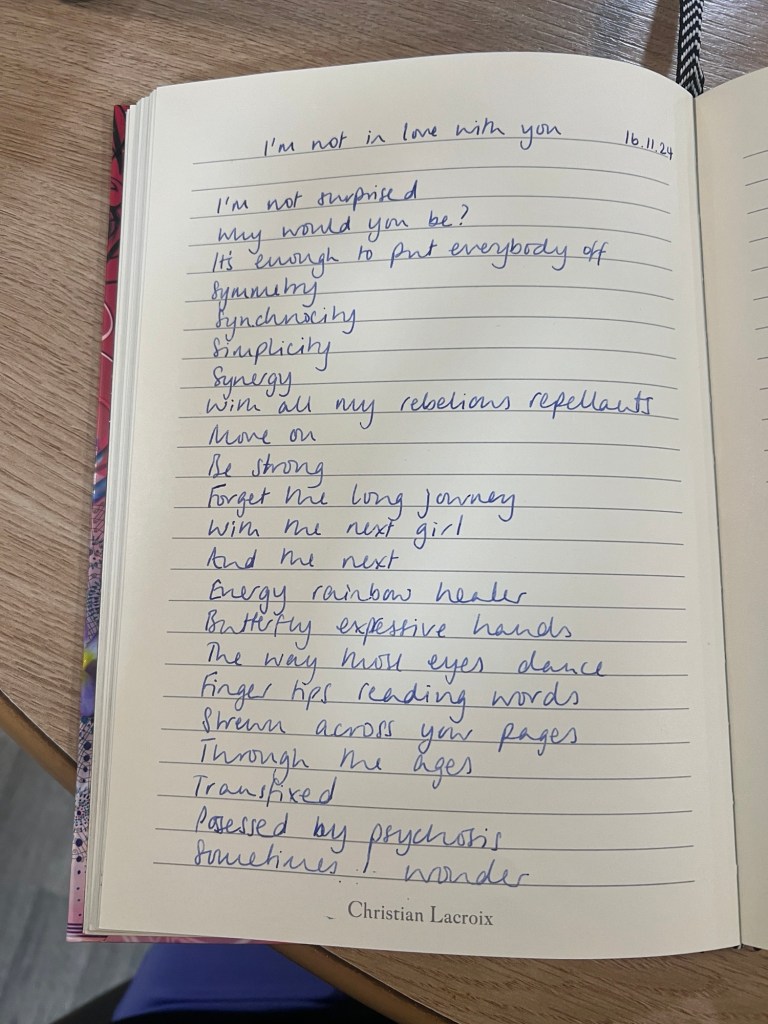 I'm not in love with you 16.11.24
I'm not surprised
Why would you be?
It's enough to put everybody off
Symmetry
Synchnocity
Simplicity
Synergy
With all my rebelious repellants
Move on
Be strong
Forget the long journey
With the next girl
And the next
Energy rainbow healer
Butterfly expessive hands
The way those eyes dance
Finger tips reading words
Strewn across your pages
Through the ages
Transfixed
Posessed by psychosis
Sometimes I wonder
Christian Lacroix